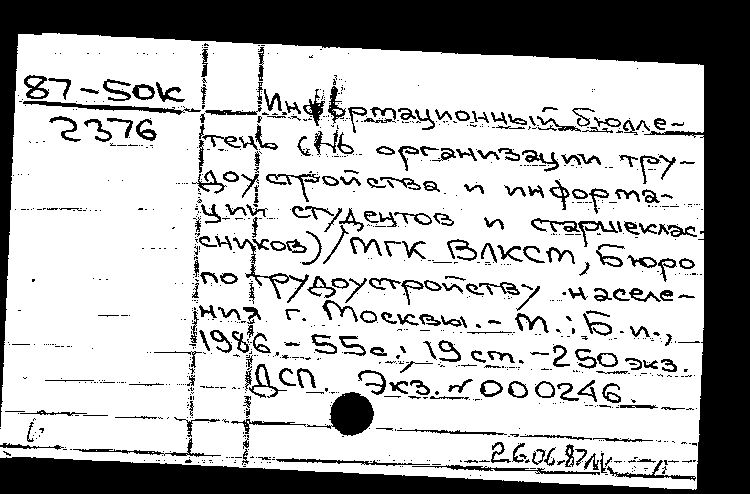 87-50К
2376
Информационный бюлле-
тень (по организации тру-
доустройства и информа-
ции студентов и старшеклас-
сников)/МГК ВЛКСМ, Бюро
по трудоустройству населе-
ния г. Москвы.-М.: Б.и.,
1986.-55с.; 19 ст.-250 экз.
ДСП. Экз. № 000246.
26.06.87